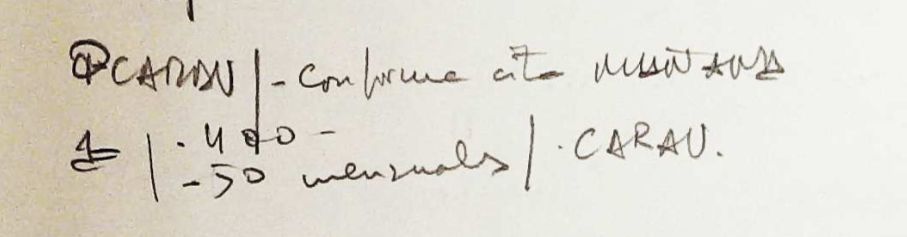 CARAU | - Conforme cita MAÑANA
1= | . 400 -
- 50 mensuales | . CARAU.